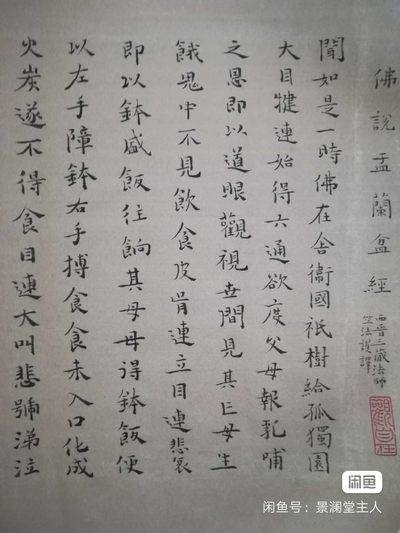 佛說盂蘭盆經
西晉三藏法師
竺法護譯
觀自在
聞如是一時佛在舍衞國祇樹給孤獨園
大目犍連始得六通欲度父母報乳哺
之恩即以道眼觀視世間見其亡母生
餓鬼中不見飲食皮骨連立目連悲哀
即以鉢盛飯往餉其母母得鉢飯便
以左手障鉢右手摶食食未入口化成
火炭遂不得食目連大叫悲號涕泣
闲鱼
闲鱼号：景澜堂主人